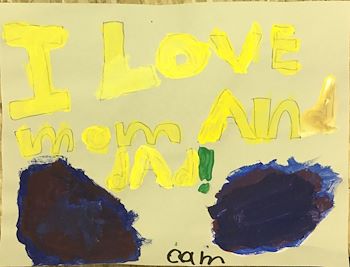 I LOVE
mom AND
DAD!
cam